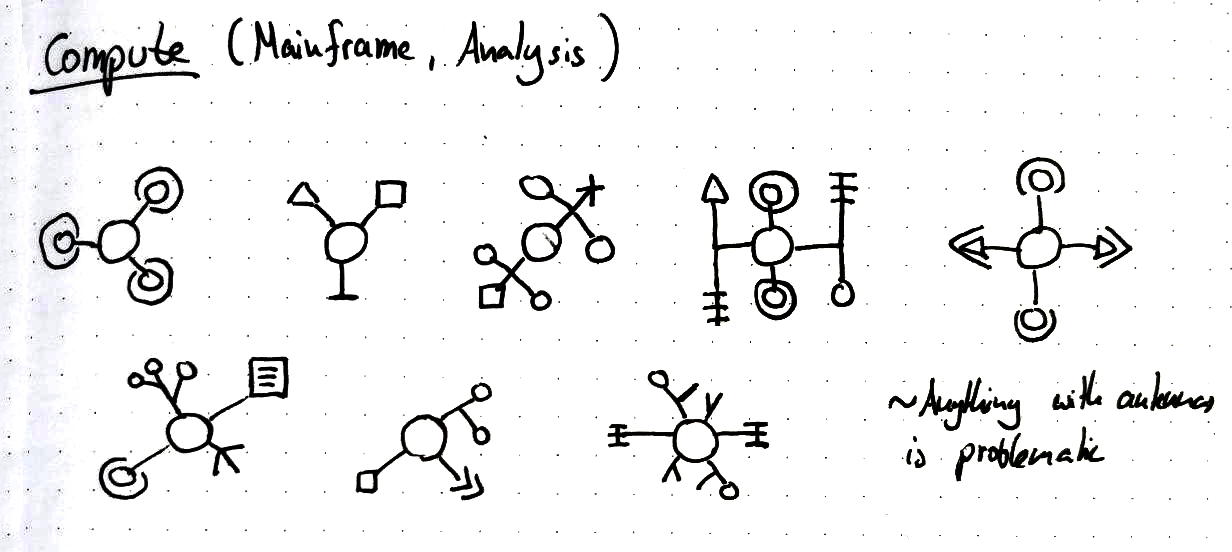 Compute (Mainframe, Analysis)
~Anything with antennas
is problematic